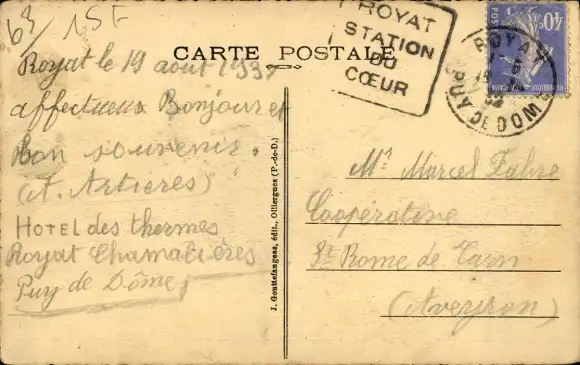 63/1SF
CARTE POSTALE
ROYAT
STATION
DU
CŒUR
40c
POSTES
ROYAT
PUY DE DOME
Royat le 19 août 1932
affectueux Bonjour et
Bon souvenir.
(A. Artieres)
HOTEL des thermes
Royat Chamalières
Puy de Dôme
J. Gouttefangeas, édit., Olliergues (P.-de-D.)
Mr Marcel Fabre
Coopérative
St Rome de Tarn
(Aveyron)